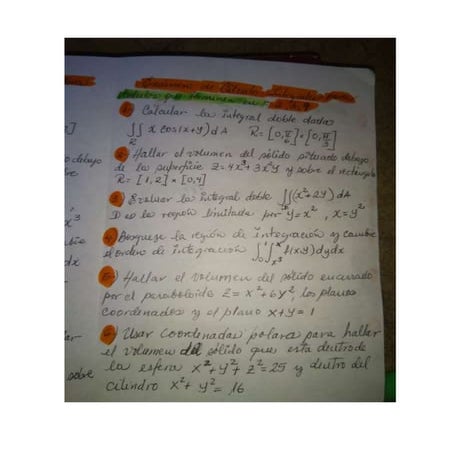 Examen de Cálculo Integral
1) Calcular la integral doble dada:
∬ x cos(x+y) dA R=[0,π/6]×[0,π/3]
R
2- Hallar el volumen del sólido situado debajo
de la superficie z=4x³+3x²y y sobre el rectángulo
R=[1,2]×[0,4]
3) Evaluar la integral doble ∬(x²+2y)dA
D es la región limitada por y=x², x=y²
4) Bosqueje la región de integración y cambie
el orden de integración ∫₀¹∫ₓ³ˣ f(x,y)dydx
5-) Hallar el volumen del sólido encerrado
por el paraboloide z=x²+6y², los planos
coordenados y el plano x+y=1
6-) Usar coordenadas polares para hallar
el volumen del sólido que esta dentro de
la esfera x²+y²+z²=25 y dentro del
cilindro x²+y²=16
debajo
x³
dx
sobre